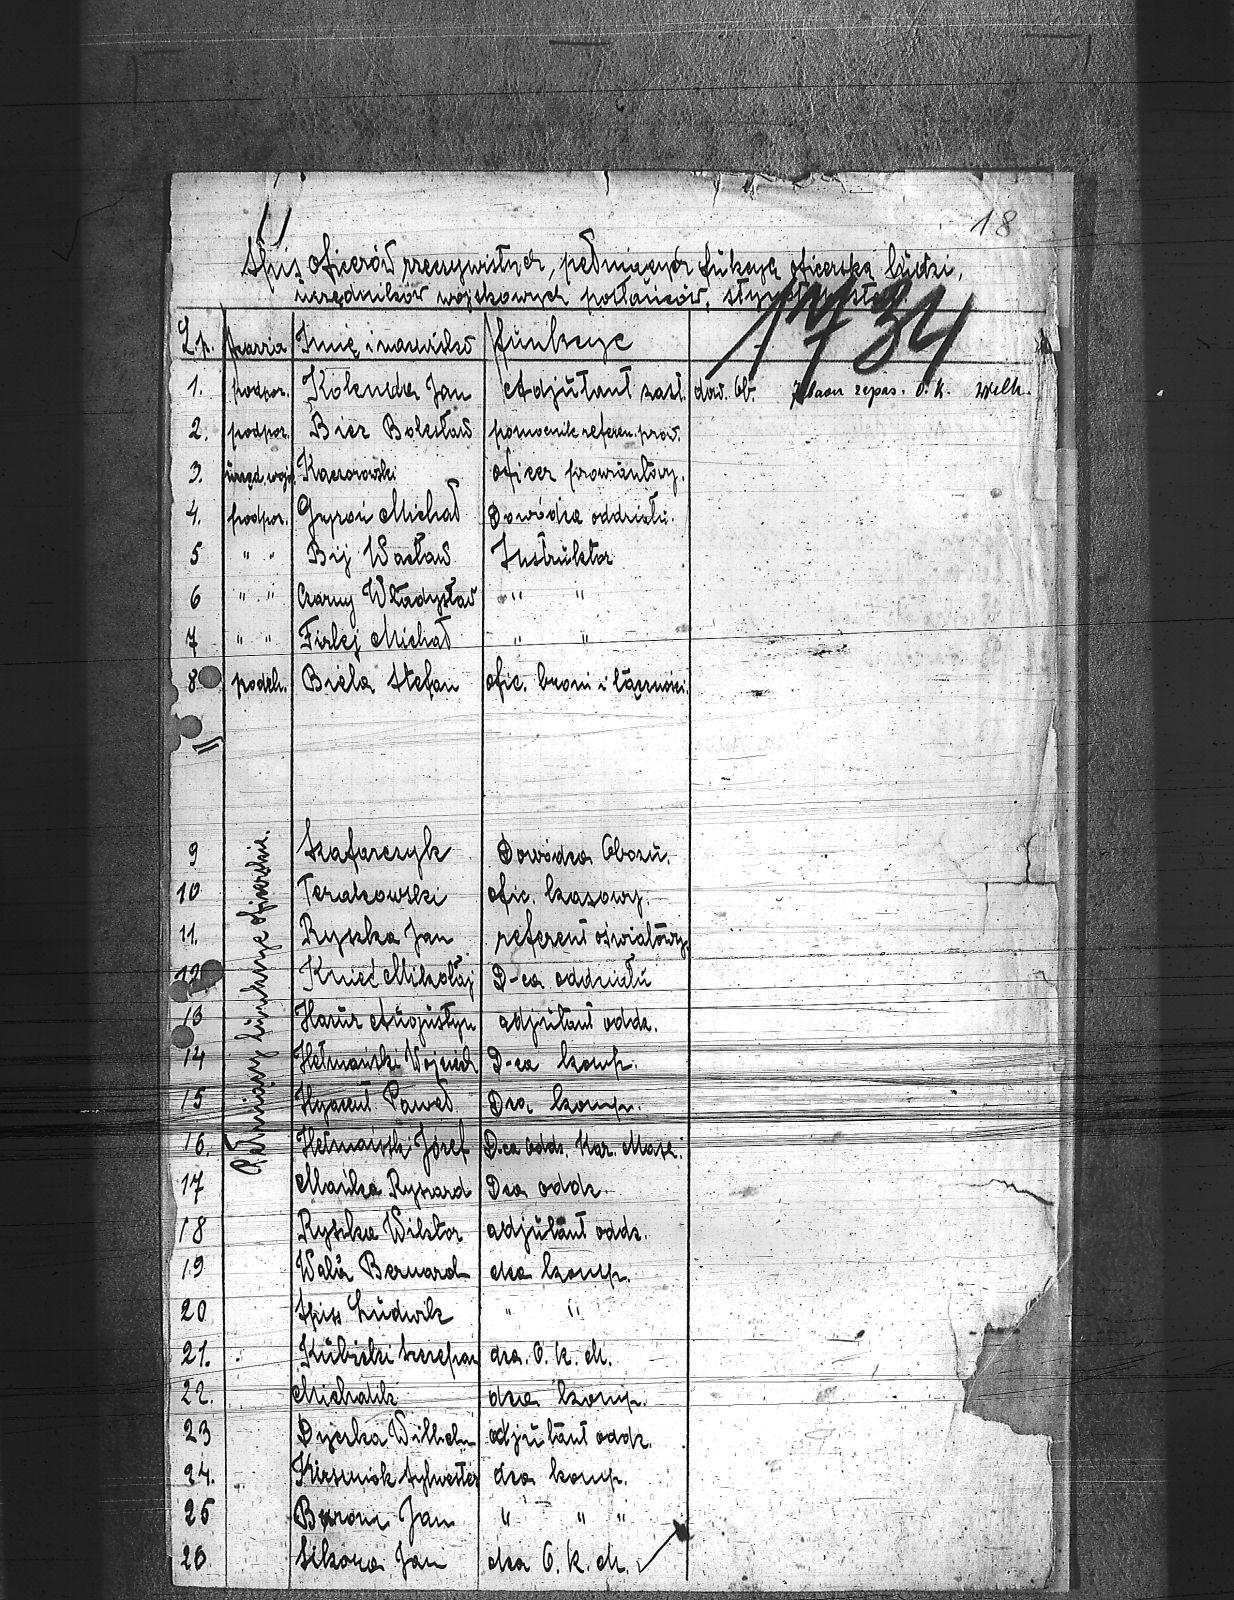 18
Spis oficerów rzeczywistych, pełniących funkcję oficerską ludzi,
urzędników wojskowych posłańców,
1734
L.p. Szarża Imię i nazwisko Funkcye
1. podpor. Kolenda Jan Adjutant zast. dow. Ob. Zbaon zapas. O.K. Wilk.
2. podpor. Bież Bolesław pomocnik referen. prow.
3. urzęd. wojs. Kaczorowski oficer prowiantowy.
4. podpor. Gyroń Michał Dowódca oddziału.
5 " " Bij Wacław Instruktor
6 " " Czarny Władysław " "
7 " " Firlej Michał " "
8 podch. Biela Stefan ofic. broni i łączności.
Pełniący funkcye oficerskie.
9 Szafarczyk Dowódca Obozu.
10 Terakowski ofic. kasowy.
11. Ryszka Jan referent oświatowy
12 Knieć Mikołaj D-ca oddziału
13 Hazur Augustyn adjutant oddz.
14 Hetmański Wojciech D-ca komp.
15 Hyacent Paweł Dca komp.
16. Hetmański Józef D-ca oddz. Kar. Masz.
17 Mańka Ryszard Dca oddz.
18 Ryszka Wiktor adjutant oddz.
19 Wala Bernard dca komp.
20 Spiss Ludwik " "
21. Kubicki Szczepan dca. O.K.M.
22. Michalik dca komp.
23 Dyczka Wilhelm adjutant oddz.
24. Sylwester dca komp.
25 Baron Jan " " "
26 Sikora Jan dca O.K.M.